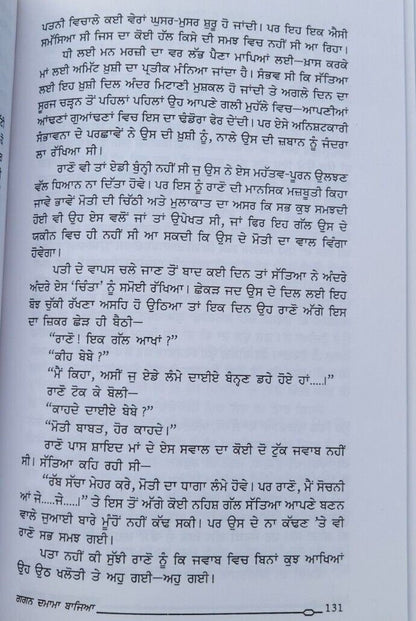 ਪਤਨੀ ਵਿਚਾਲੇ ਕਈ ਵੇਰਾਂ ਘੁਸਰ-ਮੁਸਰ ਸ਼ੁਰੂ ਹੋ ਜਾਂਦੀ। ਪਰ ਇਹ ਇਕ ਐਸੀ
ਸਮੱਸਿਆ ਸੀ ਜਿਸ ਦਾ ਕੋਈ ਹੱਲ ਕਿਸੇ ਦੀ ਸਮਝ ਵਿਚ ਨਹੀਂ ਸੀ ਆ ਰਿਹਾ।
ਧੀ ਲਈ ਮਨ ਮਰਜ਼ੀ ਦਾ ਵਰ ਲੱਭ ਪੈਣਾ ਮਾਪਿਆਂ ਲਈ—ਖ਼ਾਸ ਕਰਕੇ
ਮਾਂ ਲਈ ਅਮਿੱਟ ਖ਼ੁਸ਼ੀ ਦਾ ਪ੍ਰਤੀਕ ਮੰਨਿਆ ਜਾਂਦਾ ਹੈ। ਸੰਭਵ ਸੀ ਕਿ ਸੱਤਿਆ
ਲਈ ਇਹ ਖ਼ੁਸ਼ੀ ਦਿਲ ਅੰਦਰ ਮਿਟਾਣੀ ਮੁਸ਼ਕਲ ਹੋ ਜਾਂਦੀ ਤੇ ਅਗਲੇ ਦਿਨ ਦਾ
ਸੂਰਜ ਚੜ੍ਹਨ ਤੋਂ ਪਹਿਲਾਂ ਪਹਿਲਾਂ ਉਹ ਆਪਣੇ ਗਲੀ ਮੁਹੱਲੇ ਵਿਚ—ਆਪਣੀਆਂ
ਆਂਢਣਾਂ ਗੁਆਂਢਣਾਂ ਵਿਚ ਇਸ ਦਾ ਢੰਡੋਰਾ ਫੇਰ ਦੇਂਦੀ। ਪਰ ਏਸੇ ਅਨਿਸ਼ਟਕਾਰੀ
ਸੰਭਾਵਨਾ ਦੇ ਪਰਛਾਵੇਂ ਨੇ ਉਸ ਦੀ ਖ਼ੁਸ਼ੀ ਨੂੰ, ਨਾਲੇ ਉਸ ਦੀ ਜ਼ਬਾਨ ਨੂੰ ਜੰਦਰਾ
ਲਾ ਰੱਖਿਆ ਸੀ।
ਰਾਣੋ ਵੀ ਤਾਂ ਏਡੀ ਬੁੱਨ੍ਹੀ ਨਹੀਂ ਸੀ ਜੁ ਉਸ ਨੇ ਏਸ ਮਹੱਤਵ-ਪੂਰਨ ਉਲਝਣ
ਵੱਲ ਧਿਆਨ ਨਾ ਦਿੱਤਾ ਹੋਵੇ। ਪਰ ਇਸ ਨੂੰ ਰਾਣੋ ਦੀ ਮਾਨਸਿਕ ਮਜ਼ਬੂਤੀ ਕਿਹਾ
ਜਾਵੇ ਭਾਵੇਂ ਮੋਤੀ ਦੀ ਚਿੱਠੀ ਅਤੇ ਮੁਲਾਕਾਤ ਦਾ ਅਸਰ ਕਿ ਸਭ ਕੁਝ ਸਮਝਦੀ
ਹੋਈ ਵੀ ਉਹ ਏਸ ਵਲੋਂ ਜਾਂ ਤਾਂ ਉਪੇਖਤ ਸੀ, ਜਾਂ ਫਿਰ ਇਹ ਗੱਲ ਉਸ ਦੇ
ਯਕੀਨ ਵਿਚ ਹੀ ਨਹੀਂ ਸੀ ਆ ਸਕਦੀ ਕਿ ਉਸ ਦੇ ਮੋਤੀ ਦਾ ਵਾਲ ਵਿੰਗਾ
ਹੋਵੇਗਾ।
ਪਤੀ ਦੇ ਵਾਪਸ ਚਲੇ ਜਾਣ ਤੋਂ ਬਾਦ ਕਈ ਦਿਨ ਤਾਂ ਸੱਤਿਆ ਨੇ ਅੰਦਰੇ
ਅੰਦਰੇ ਏਸ 'ਚਿੰਤਾ' ਨੂੰ ਸਮੋਈ ਰੱਖਿਆ। ਛੇਕੜ ਜਦ ਉਸ ਦੇ ਦਿਲ ਲਈ ਇਹ
ਬੋਝ ਚੁੱਕੀ ਰੱਖਣਾ ਅਸਹਿ ਹੋ ਉਠਿਆ ਤਾਂ ਇਕ ਦਿਨ ਉਹ ਰਾਣੋ ਅੱਗੇ ਇਸ
ਦਾ ਜ਼ਿਕਰ ਛੇੜ ਹੀ ਬੈਠੀ—
"ਰਾਣੋ! ਇਕ ਗੱਲ ਆਖਾਂ?"
"ਕੀਹ ਬੇਬੇ?"
"ਮੈਂ ਕਿਹਾ, ਅਸੀਂ ਜੁ ਏਡੇ ਲੰਮੇ ਦਾਈਏ ਬੰਨ੍ਹਣ ਡਹੇ ਹੋਏ ਹਾਂ.....।"
ਰਾਣੋ ਟੋਕ ਕੇ ਬੋਲੀ—
"ਕਾਹਦੇ ਦਾਈਏ ਬੇਬੇ?"
"ਮੋਤੀ ਬਾਬਤ, ਹੋਰ ਕਾਹਦੇ।"
ਰਾਣੋ ਪਾਸ ਸ਼ਾਇਦ ਮਾਂ ਦੇ ਏਸ ਸਵਾਲ ਦਾ ਕੋਈ ਦੋ ਟੁੱਕ ਜਵਾਬ ਨਹੀਂ
ਸੀ। ਸੱਤਿਆ ਕਹਿ ਰਹੀ ਸੀ—
"ਰੱਬ ਸੱਚਾ ਮੇਹਰ ਕਰੇ, ਮੋਤੀ ਦਾ ਧਾਗਾ ਲੰਮੇ ਹੋਵੇ। ਪਰ ਰਾਣੋ, ਮੈਂ ਸੋਚਨੀ
ਆਂ ਜੇ.....ਜੇ.....।" ਤੇ ਇਸ ਤੋਂ ਅੱਗੇ ਕੋਈ ਨਹਿਸ਼ ਗੱਲ ਸੱਤਿਆ ਆਪਣੇ ਬਣਨ
ਵਾਲੇ ਜੁਆਈ ਬਾਰੇ ਮੂੰਹੋਂ ਨਹੀਂ ਕੱਢ ਸਕੀ। ਪਰ ਉਸ ਦੇ ਨਾ ਕੱਢਣ 'ਤੇ ਵੀ
ਰਾਣੋ ਸਭ ਸਮਝ ਗਈ।
ਪਤਾ ਨਹੀਂ ਕੀ ਸੁੱਝੀ ਰਾਣੋ ਨੂੰ ਕਿ ਜਵਾਬ ਵਿਚ ਬਿਨਾਂ ਕੁਝ ਆਖਿਆਂ
ਉਹ ਉਠ ਖਲੋਤੀ ਤੇ ਅਹੁ ਗਈ—ਅਹੁ ਗਈ।
ਗਗਨ ਦਮਾਮਾ ਬਾਜਿਆ 131